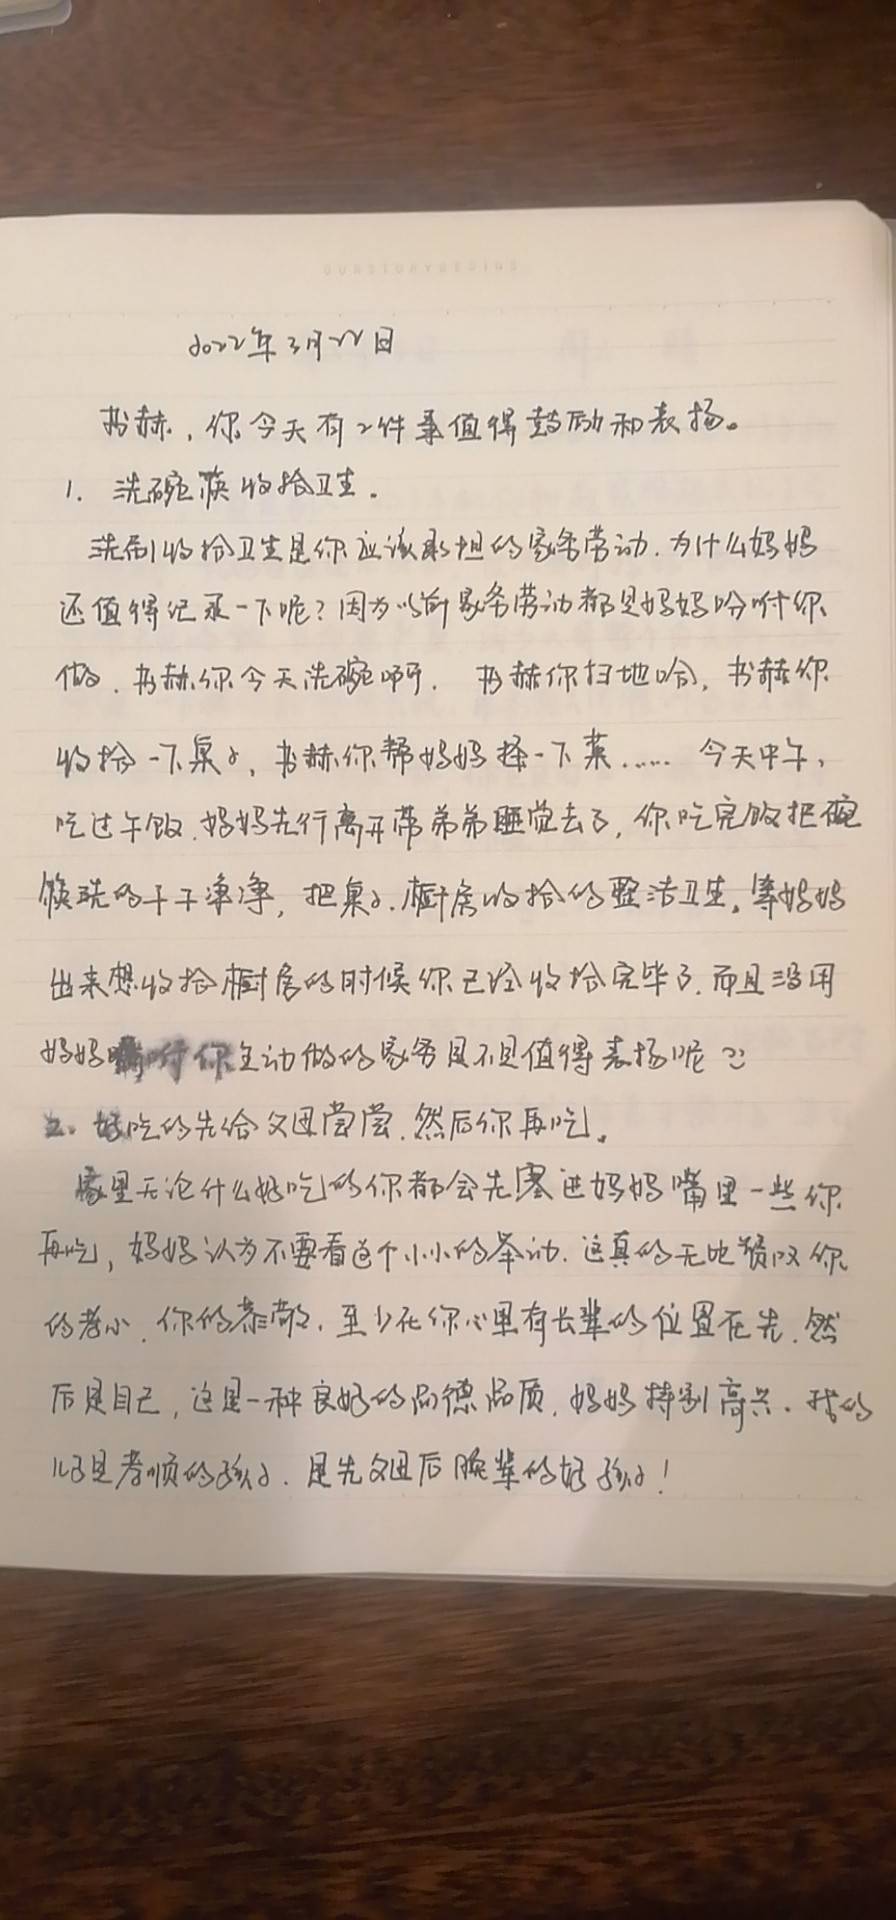 OURSTORYBEGINS
2022年3月22日
书赫，你今天有2件事值得鼓励和表扬。
1. 洗碗筷收拾卫生。
洗刷收拾卫生是你应该承担的家务劳动，为什么妈妈
还值得记录一下呢？因为以前家务劳动都是妈妈吩咐你
做，书赫你今天洗碗啊，书赫你扫地哈，书赫你
收拾一下桌子，书赫你帮妈妈择一下菜…… 今天中午，
吃过午饭，妈妈先行离开带弟弟睡觉去了，你吃完饭把碗
筷洗的干干净净，把桌子，橱房收拾的整洁卫生。等妈妈
出来想收拾橱房的时候你已经收拾完毕了，而且没用
妈妈嘱咐你主动做的家务是不是值得表扬呢
2. 好吃的先给父母尝尝，然后你再吃。
家里无论什么好吃的你都会先塞进妈妈嘴里一些你
再吃，妈妈认为不要看这个小小的举动，这真的无比赞叹你
的孝心，你的恭敬，至少在你心里有长辈的位置在先，然
后是自己，这是一种良好的品德品质，妈妈特别高兴，我的
儿子是孝顺的孩子，是先父母后晚辈的好孩子！